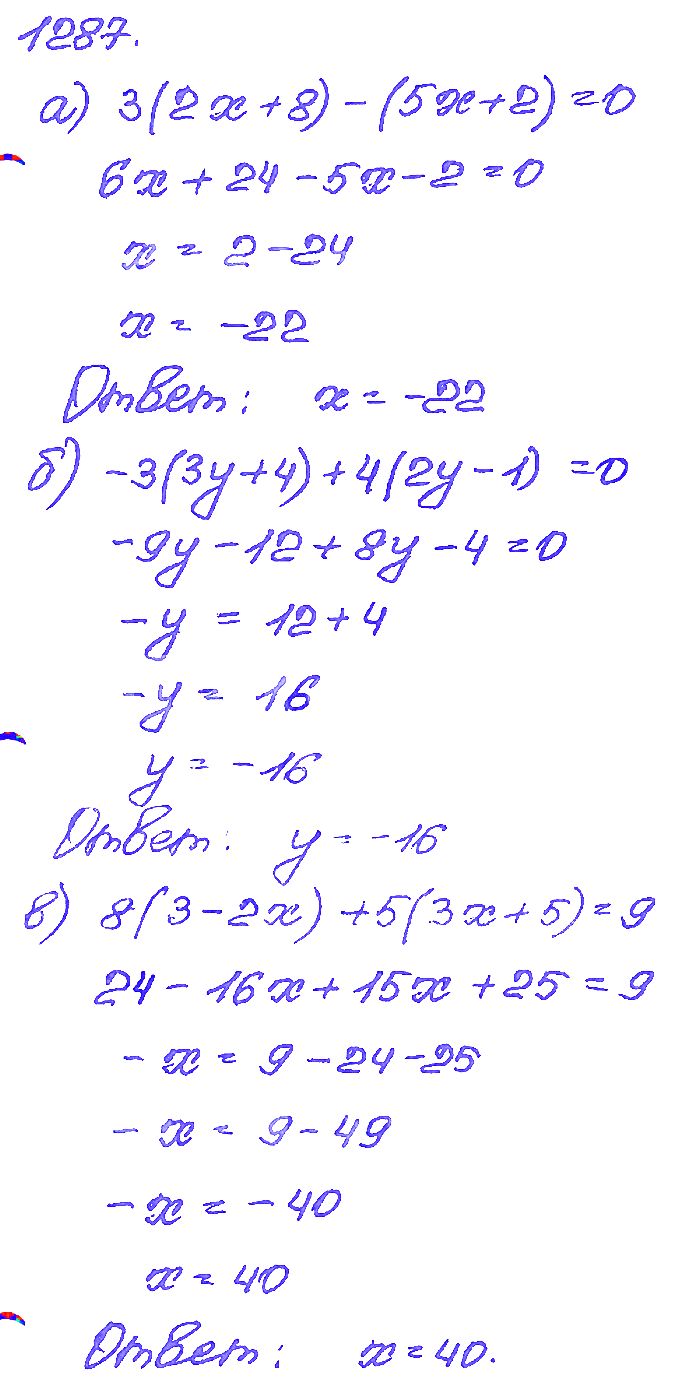 1287.
а) 3(2x+8)-(5x+2)=0
6x+24-5x-2=0
x = 2-24
x = -22
Ответ: x = -22
б) -3(3y+4)+4(2y-1) =0
-9y-12+8y-4=0
-y = 12+4
-y = 16
y = -16
Ответ: y = -16
в) 8(3-2x)+5(3x+5)=9
24-16x+15x+25=9
-x = 9-24-25
-x = 9-49
-x = -40
x = 40
Ответ: x=40.